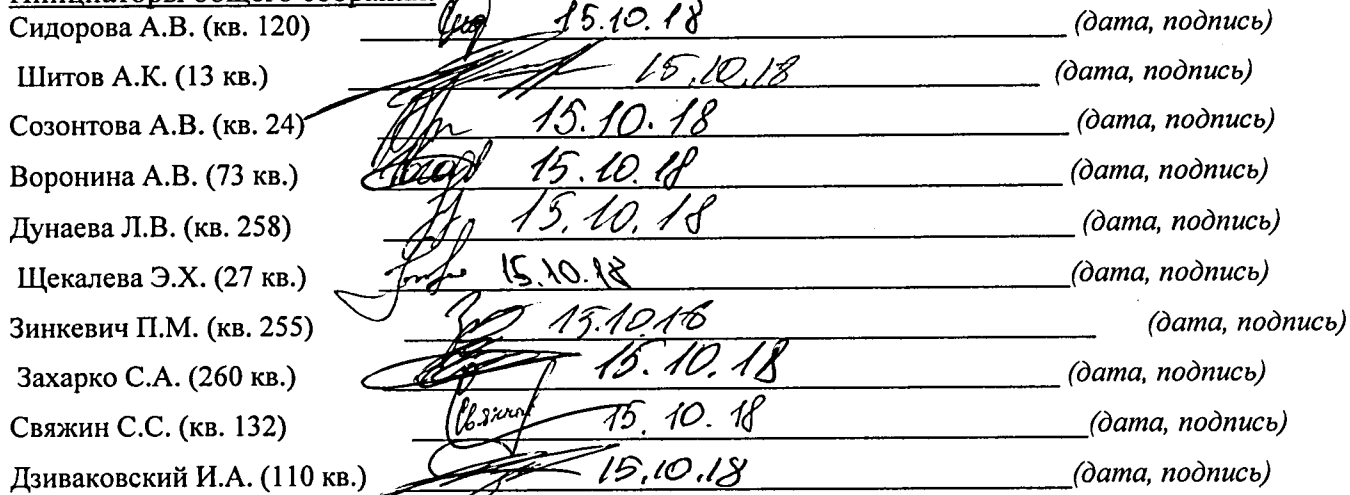 Инициаторы общего собрания:
Сидорова А.В. (кв. 120) 15.10.18 (дата, подпись)
Шитов А.К. (13 кв.) 15.10.18 (дата, подпись)
Созонтова А.В. (кв. 24) 15.10.18 (дата, подпись)
Воронина А.В. (73 кв.) 15.10.18 (дата, подпись)
Дунаева Л.В. (кв. 258) 15.10.18 (дата, подпись)
Щекалева Э.Х. (27 кв.) 15.10.18 (дата, подпись)
Зинкевич П.М. (кв. 255) 15.10.18 (дата, подпись)
Захарко С.А. (260 кв.) 15.10.18 (дата, подпись)
Свяжин С.С. (кв. 132) 15.10.18 (дата, подпись)
Дзиваковский И.А. (110 кв.) 15.10.18 (дата, подпись)